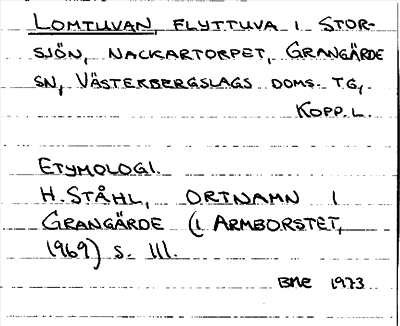 LOMTUVAN, FLYTTUVA I STOR-
SJÖN, NACKARTORPET, GRANGÄRDE
SN, VÄSTERBERGSLAGS DOMS. TG,.
KOPP. L.
ETYMOLOGI.
H. STÅHL, ORTNAMN I
GRANGÄRDE (I ARMBORSTET,
1969) S. 111.
BME 1973